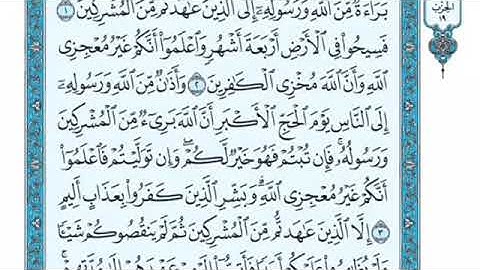 الحزب
١٩
بَرَآءَةٌ مِّنَ ٱللَّهِ وَرَسُولِهِۦٓ إِلَى ٱلَّذِينَ عَٰهَدتُّم مِّنَ ٱلْمُشْرِكِينَ ١
فَسِيحُوا۟ فِى ٱلْأَرْضِ أَرْبَعَةَ أَشْهُرٍ وَٱعْلَمُوٓا۟ أَنَّكُمْ غَيْرُ مُعْجِزِى
ٱللَّهِ وَأَنَّ ٱللَّهَ مُخْزِى ٱلْكَٰفِرِينَ ٢ وَأَذَٰنٌ مِّنَ ٱللَّهِ وَرَسُولِهِۦٓ
إِلَى ٱلنَّاسِ يَوْمَ ٱلْحَجِّ ٱلْأَكْبَرِ أَنَّ ٱللَّهَ بَرِىٓءٌ مِّنَ ٱلْمُشْرِكِينَ
وَرَسُولُهُۥ فَإِن تُبْتُمْ فَهُوَ خَيْرٌ لَّكُمْ وَإِن تَوَلَّيْتُمْ فَٱعْلَمُوٓا۟
أَنَّكُمْ غَيْرُ مُعْجِزِى ٱللَّهِ وَبَشِّرِ ٱلَّذِينَ كَفَرُوا۟ بِعَذَابٍ أَلِيمٍ
٣ إِلَّا ٱلَّذِينَ عَٰهَدتُّم مِّنَ ٱلْمُشْرِكِينَ ثُمَّ لَمْ يَنقُصُوكُمْ شَيْـًٔا
وَلَمْ يُظَٰهِرُوا۟ عَلَيْكُمْ أَحَدًا فَأَتِمُّوٓا۟ إِلَيْهِمْ عَهْدَهُمْ إِلَىٰ مُدَّتِهِمْ